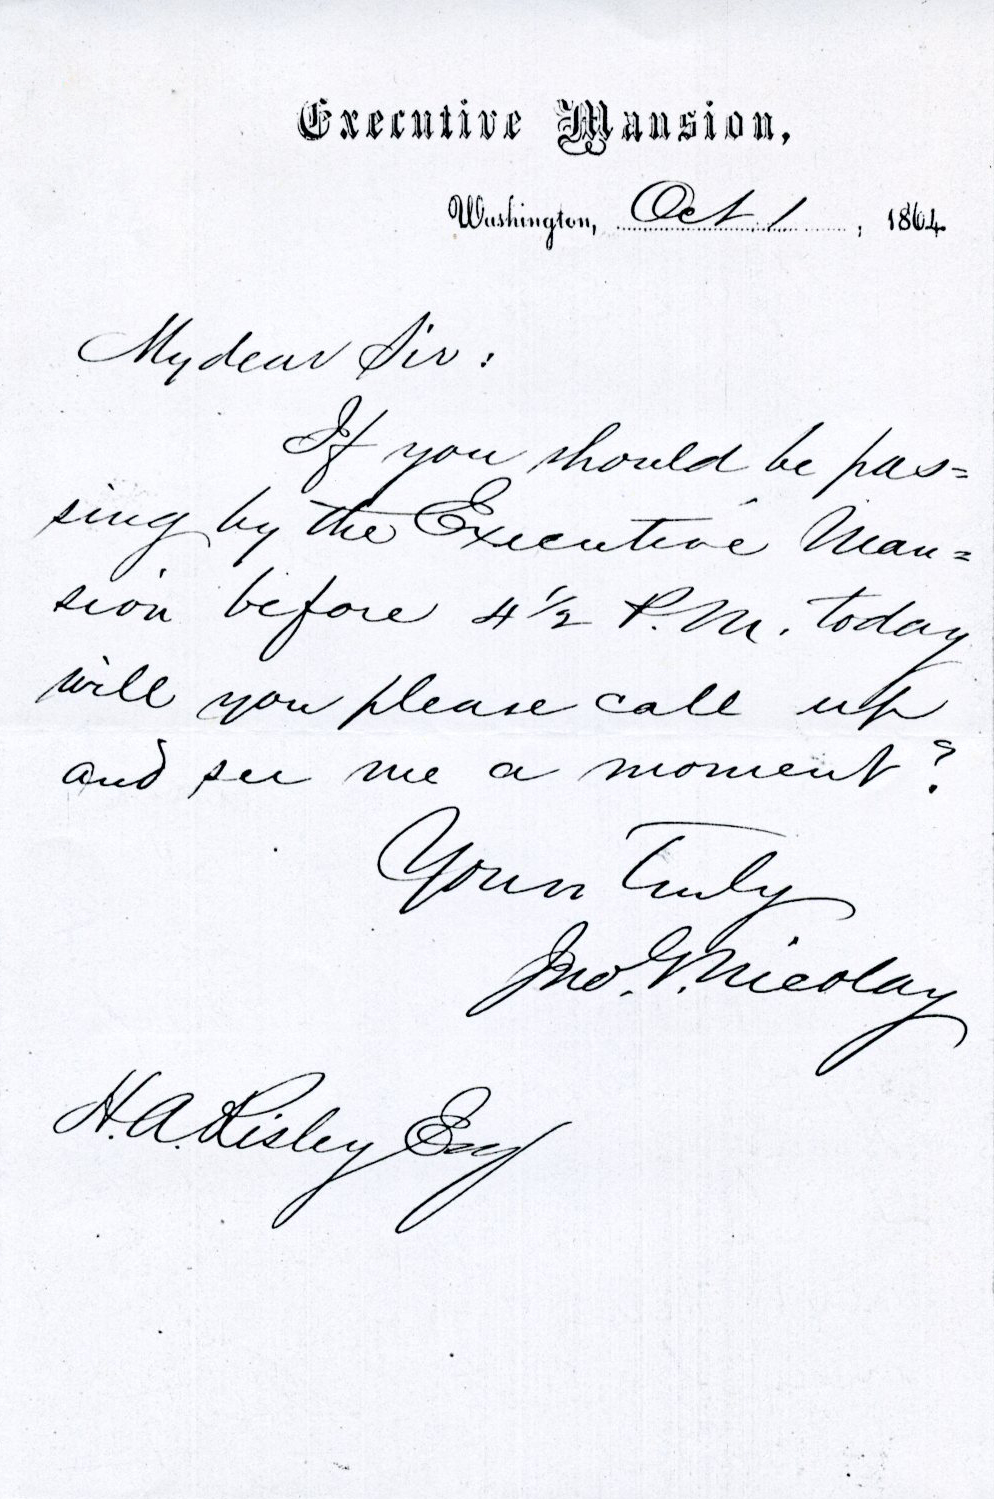 Executive Mansion,
Washington, Oct 1, 1864.
My dear Sir:
If you should be pas=
sing by the Executive Man=
sion before 4½ P.M. today
will you please call up
and see me a moment?
Yours Truly
Jno. G. Nicolay
H. A. Risley Esq